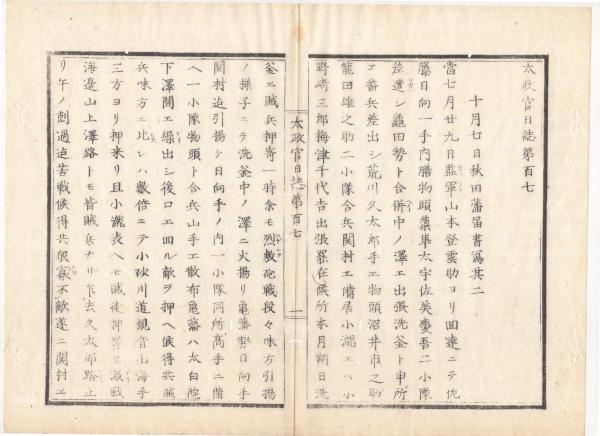 太政官日誌第百七
十月七日秋田藩届書寫其二
當七月廿九日監軍山本登雲助ヨリ回達ニテ佐
藤日向一手内膳物頭藁隼太宇佐美慶吾二小隊
差遣シ龜田勢ト合併中ノ澤エ出張洗釜ト申所
エ番兵差出シ荒川久太郎手エ物頭沼井市之助
龍田雄之助二小隊合兵関村エ備居小瀧エハ小
野崎三郎梅津千代吉出張罷在候所本月朔日洗
太政官日誌第百七
一
釜エ賊兵押寄一時余モ烈敷砲戰段々味方引揚
ノ様子ニテ洗釜中ノ澤ニ火揚リ亀藩勢日向手
関村迄引揚ケ日向手ノ内一小隊同所高手ニ備
ヘ一小隊物頭ト合兵山手エ散布亀藩ハ太白院
下澤間エ繰出シ後口エ回ル敵ヲ押ヘ候得共賊
兵味方ニ比シハ數倍ニテ小砂川道観音山海手
三方ヨリ押来リ且小瀧表ヘモ賊徒押寄セ激戰
海邉山上澤路トモ皆賊兵ナリ乍去久太郎踏止
リ午ノ刻過迠苦戰候得共衆寡不敵遂ニ関村エ